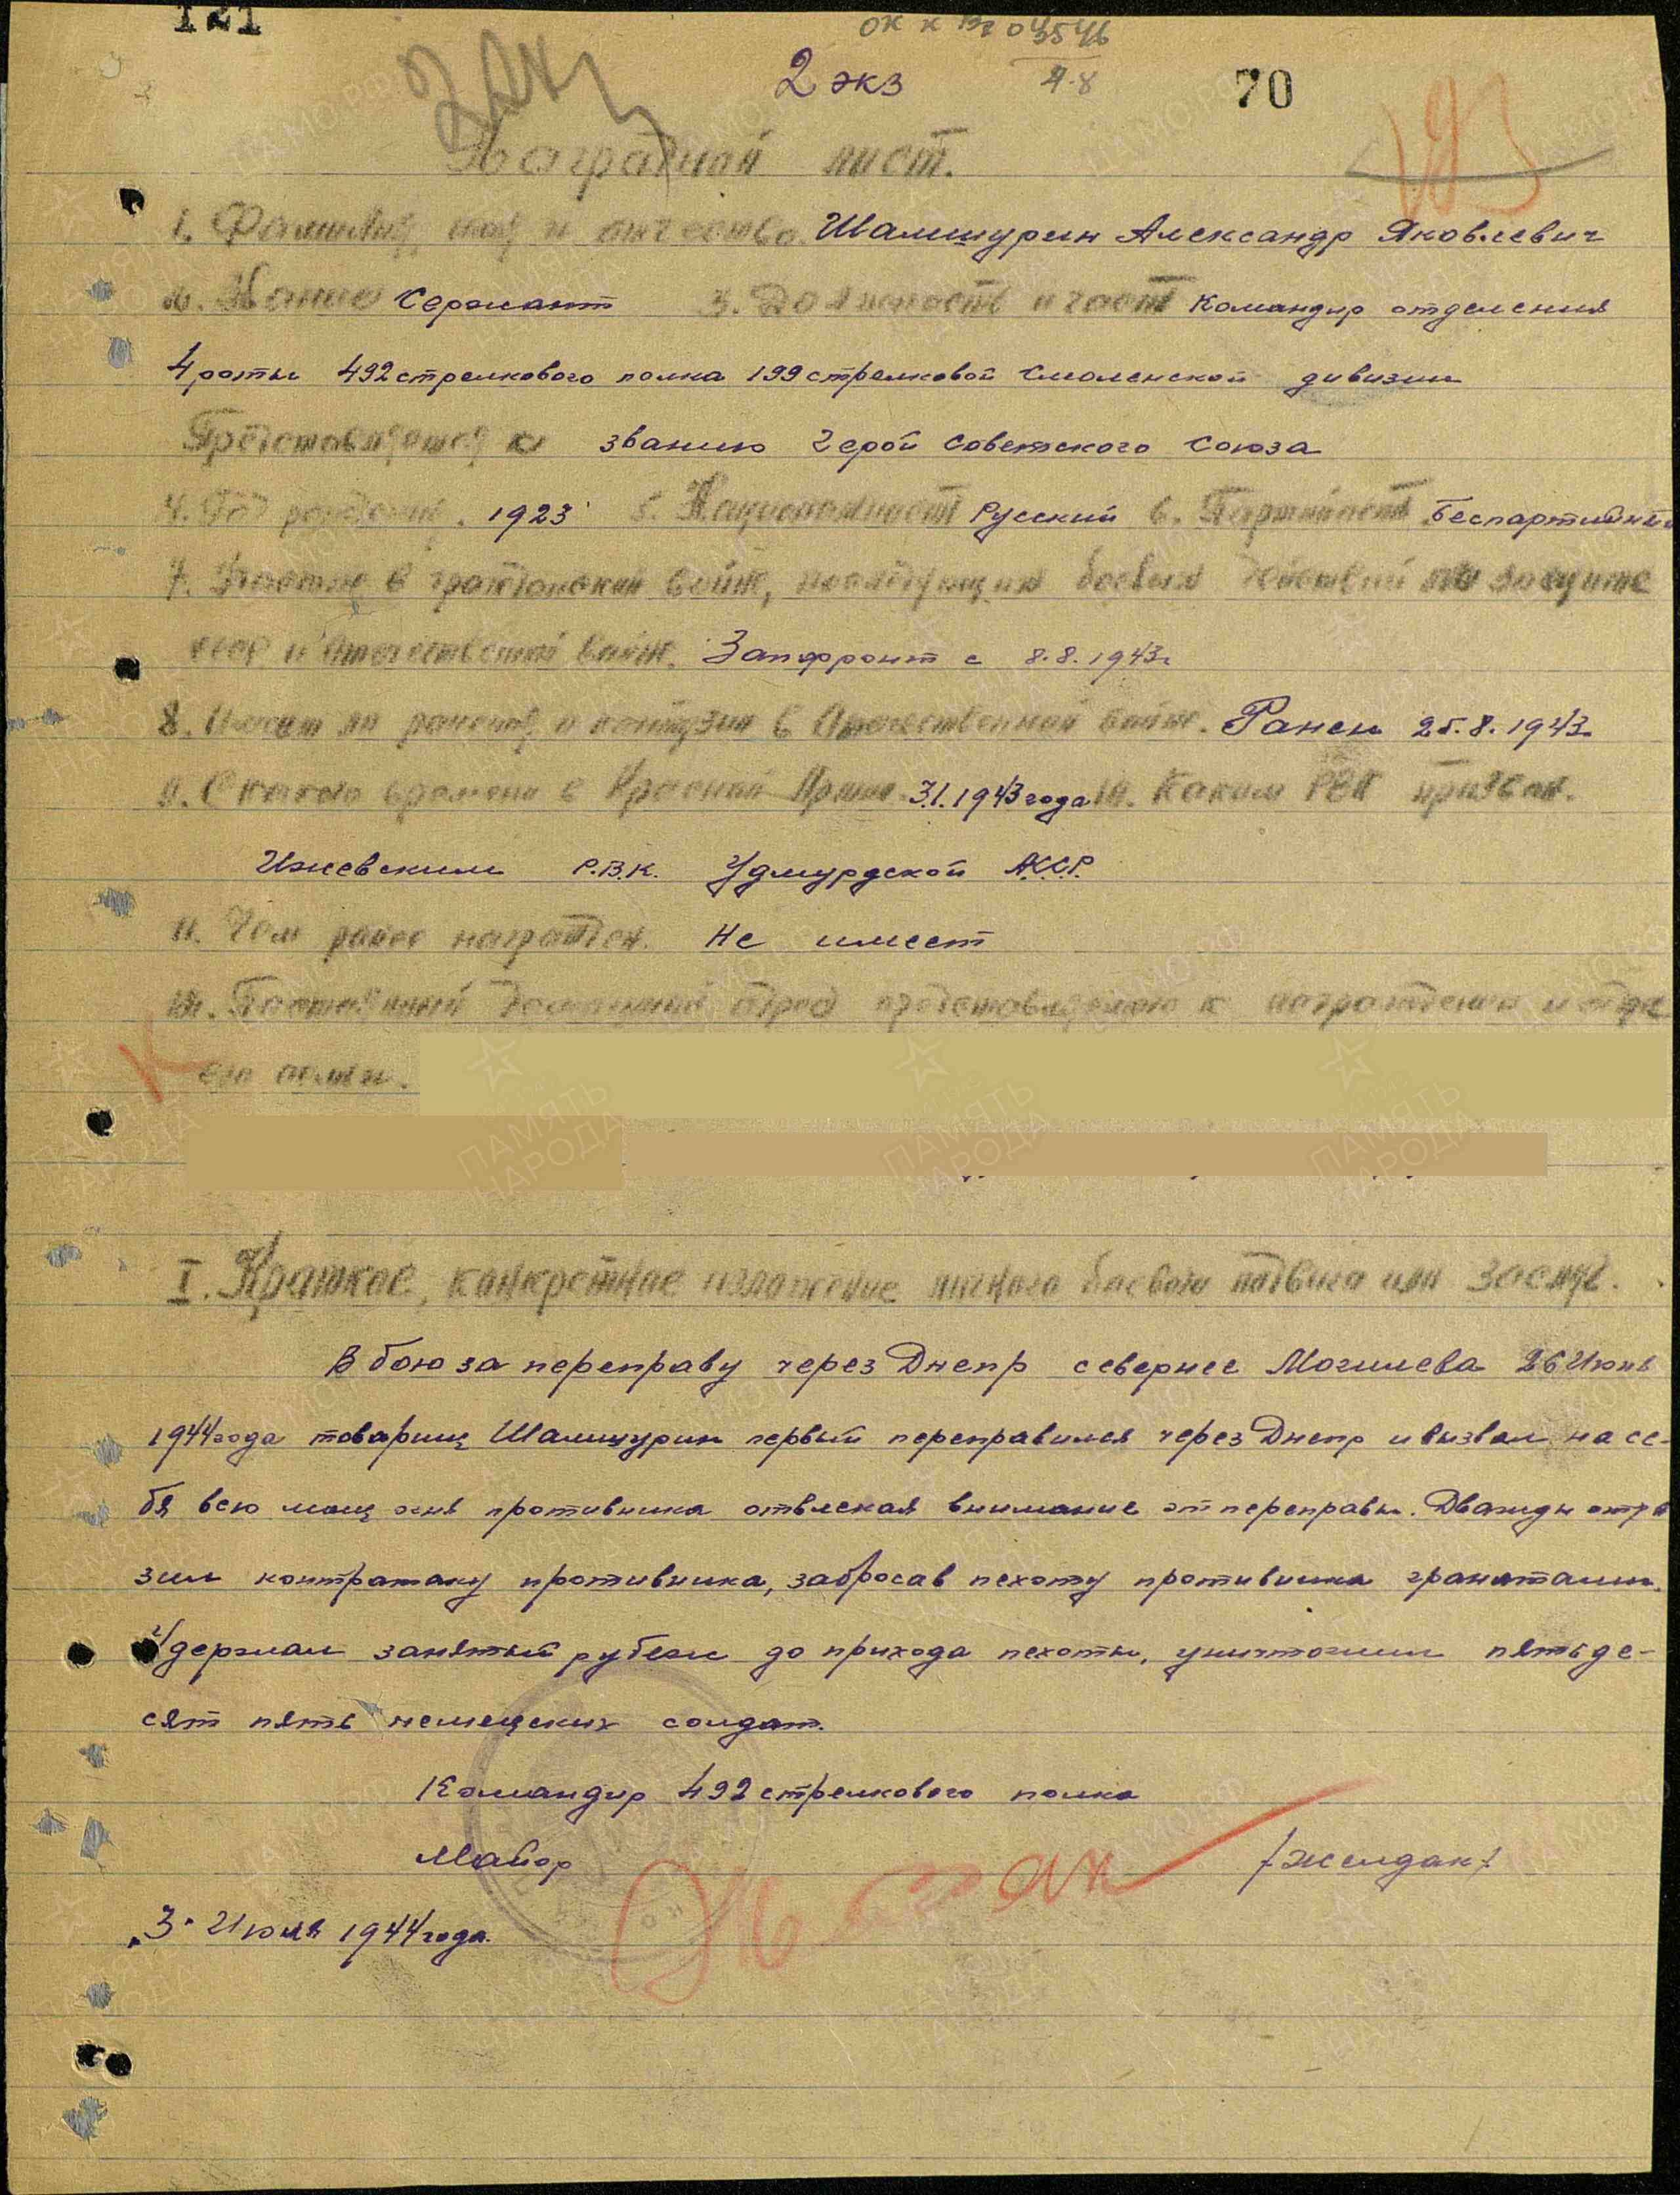 121
2 экз
70
Наградной лист.
1. Фамилия, имя и отчество. Шамшурин Александр Яковлевич
2. Звание Сержант 3. Должность и часть Командир отделения
4 роты 492 стрелкового полка 199 стрелковой Смоленской дивизии
Представляется к званию Герой Советского Союза
4. Год рождения. 1923 5. Национальность Русский 6. Партийность Беспартийный
7. Участие в гражданской войне, последующих боевых действий по защите
СССР и отечественной войне. Запфронт с 8.8.1943г
8. Имеет ли ранения и контузии в Отечественной войне. Ранен 25.8.1943.
9. С какого времени в Красной Армии. 3.1.1943 года 10. Каким РВК призван.
Ижевским Р.В.К. Удмурдской АССР
11. Чем ранее награжден. Не имеет
12. Постоянный домашний адрес представляемого к награждению и адрес
его семьи.
I. Краткое, конкретное изложение личного боевого подвига или заслуг.
В бою за переправу через Днепр севернее Могилева 26 Июня
1944 года товарищ Шамшурин первый переправился через Днепр и вызвал на се-
бя всю мощ огня противника отвлекая внимание от переправы. Дважды отра
зил контратаку противника, забросав пехоту противника гранатами.
Удержал занятый рубеж до прихода пехоты, уничтожил пятьде-
сят пять немецких солдат.
Командир 492 стрелкового полка
Майор /Желдак/
"3" Июля 1944 года.
ПАМЯТЬ НАРОДА